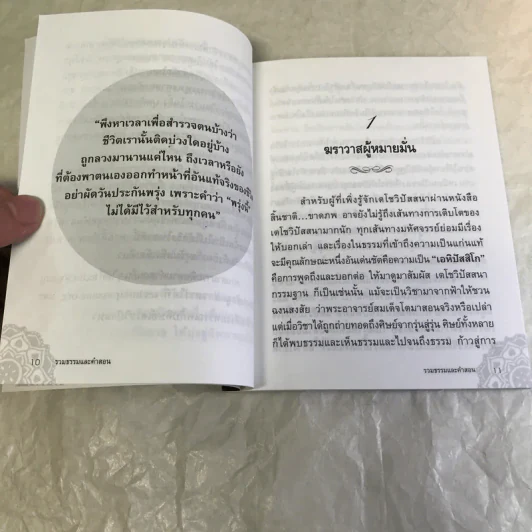 "พึงหาเวลาเพื่อสำรวจตนบ้างว่า
ชีวิตเรานั้นติดบ่วงใดอยู่บ้าง
ถูกลวงมานานแค่ไหน ถึงเวลาหรือยัง
ที่ต้องพาตนเองออกทำหน้าที่อันแท้จริงของชีวิต
อย่าผัดวันประกันพรุ่ง เพราะคำว่า "พรุ่งนี้"
ไม่ได้มีไว้สำหรับทุกคน"
10 รวมธรรมและคำสอน
1
ฆราวาสผู้หมายมั่น
สำหรับผู้ที่เพิ่งรู้จักเตโชวิปัสสนาผ่านหนังสือ
สิ้นชาติ...ขาดภพ อาจยังไม่รู้ถึงเส้นทางการเติบโตของ
เตโชวิปัสสนามากนัก ทุกเส้นทางมหัศจรรย์ย่อมมีเรื่อง
ให้บอกเล่า และเรื่องในธรรมที่เข้าถึงความเป็นแก่นแท้
จะมีคุณลักษณะหนึ่งอันเด่นชัดคือความเป็น "เอหิปัสสิโก"
คือการพูดถึงและบอกต่อ ให้มาดูมาสัมผัส เตโชวิปัสสนา
กรรมฐาน ก็เป็นเช่นนั้น แม้จะเป็นวิชามาจากฟ้าให้ชวน
ฉงนสงสัย ว่าพระอาจารย์สมเด็จโตมาสอนจริงหรือเปล่า
แต่เมื่อวิชาได้ถูกถ่ายทอดถึงศิษย์จากรุ่นสู่รุ่น ศิษย์ทั้งหลาย
ก็ได้พบธรรมและเห็นธรรมและไปจนถึงธรรม ก้าวสู่การ
รวมธรรมและคำสอน 11